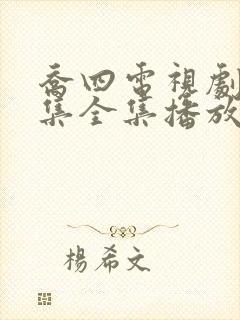 喬四電視劇
集全集播放
楊希文